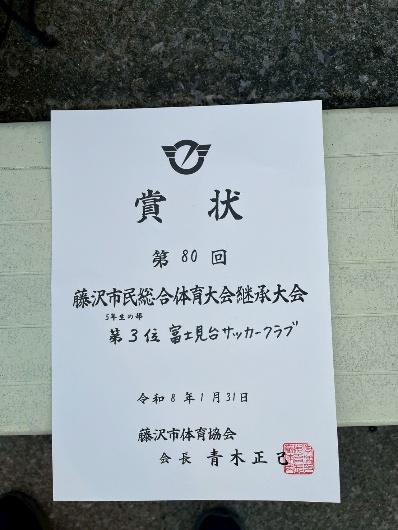 賞状
第80回
藤沢市民総合体育大会継承大会
5年生の部
第3位 富士見台サッカークラブ
令和8年1月31日
藤沢市体育協会
会長 青木正己